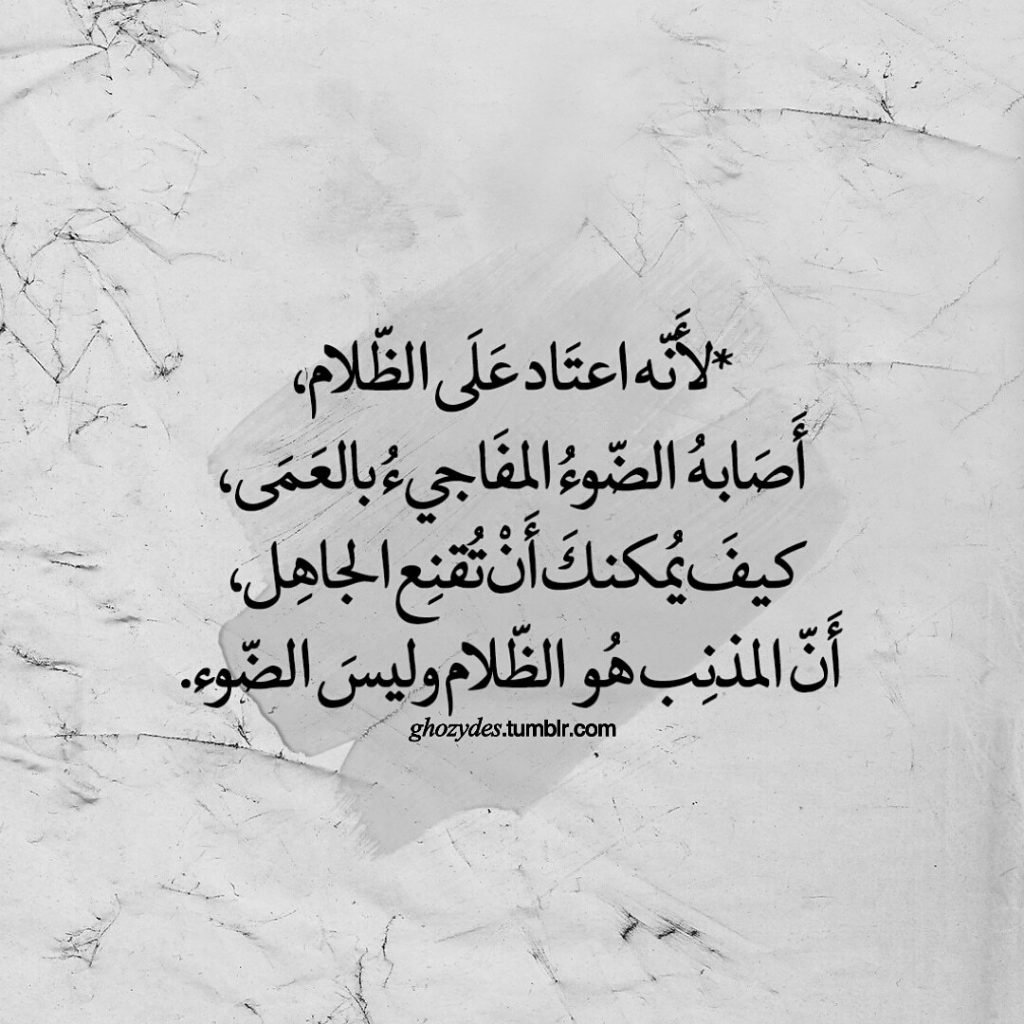 *لأَنّه اعتَاد عَلَى الظّلام،
أَصَابهُ الضّوءُ المفَاجيءُ بالعَمَى،
كيفَ يُمكنكَ أَنْ تُقنِع الجاهِل،
أَنّ المذنِب هُو الظّلام وليسَ الضّوء.
ghozydes.tumblr.com